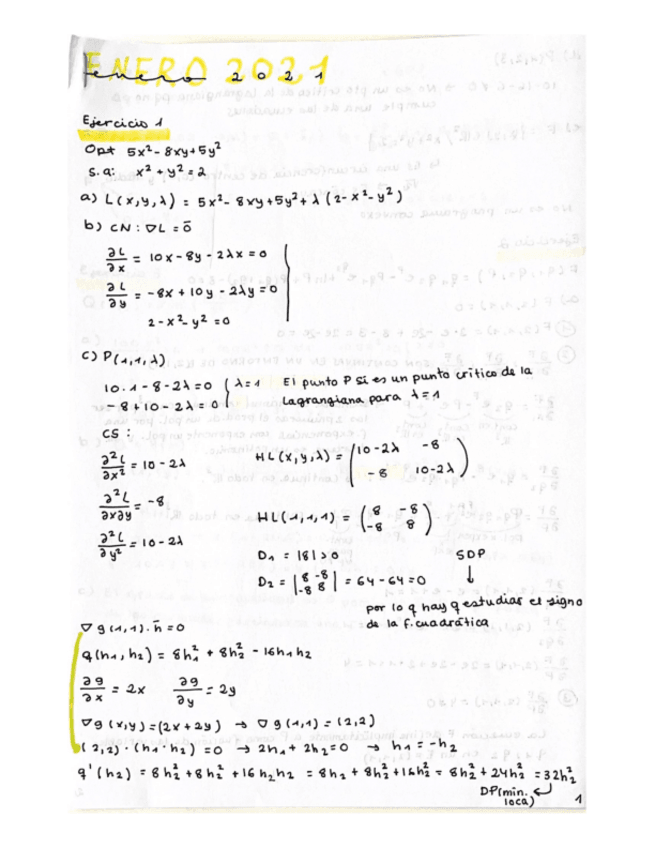 ENERO 2021
enero 2021
Ejercicio 1
Opt 5x²-8xy+5y²
s.a: x²+y²=2
a) L(x,y,λ) = 5x²-8xy+5y²+λ(2-x²-y²)
b) CN: ∇L=0̄
∂L/∂x = 10x-8y-2λx=0
∂L/∂y = -8x+10y-2λy=0
2-x²-y²=0
c) P(1,1,λ)
10·1-8-2λ=0 λ=1 El punto P si es un punto crítico de la
-8+10-2λ=0 Lagrangiana para λ=1
CS:
∂²L/∂x² = 10-2λ HL(x,y,λ) = (10-2λ -8
-8 10-2λ)
∂²L/∂x∂y = -8
HL(1,1,1) = (8 -8
-8 8)
∂²L/∂y² = 10-2λ
D₁ = |8|>0 SDP
D₂ = |8 -8
-8 8| = 64-64=0 ↓
por lo q hay q estudiar el signo
de la f.cuadrática
∇g(1,1)·h̄=0
q(h₁,h₂) = 8h₁² + 8h₂² - 16h₁h₂
∂g/∂x = 2x ∂g/∂y = 2y
∇g(x,y)=(2x+2y) → ∇g(1,1)=(2,2)
(2,2)·(h₁·h₂)=0 → 2h₁+2h₂=0 → h₁=-h₂
q'(h₂) = 8h₂²+8h₂²+16h₂h₂ = 8h₂+8h₂²+16h₂² = 8h₂²+24h₂² = 32h₂²
DP(min.
loca)
1